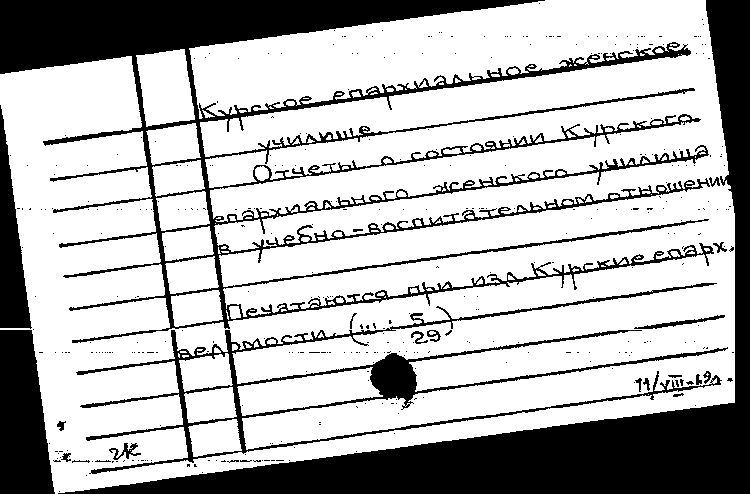 Курское епархиальное женское
училище.
Отчеты о состоянии Курского
епархиального женского училища
в учебно-воспитательном отношении
Печатаются при изд. Курские епарх.
ведомости. (ш: 5/29)
11/VIII-49г.
2К